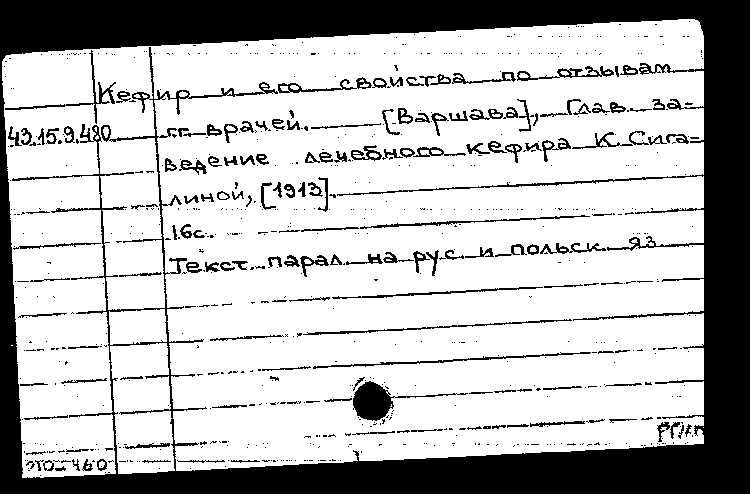 Кефир и его свойства по отзывам
43.15.9.480 гг. врачей. [Варшава], Глав. за=
ведение лечебного кефира К. Сига=
линой, [1913].
16с.
Текст парал. на рус. и польск. яз.